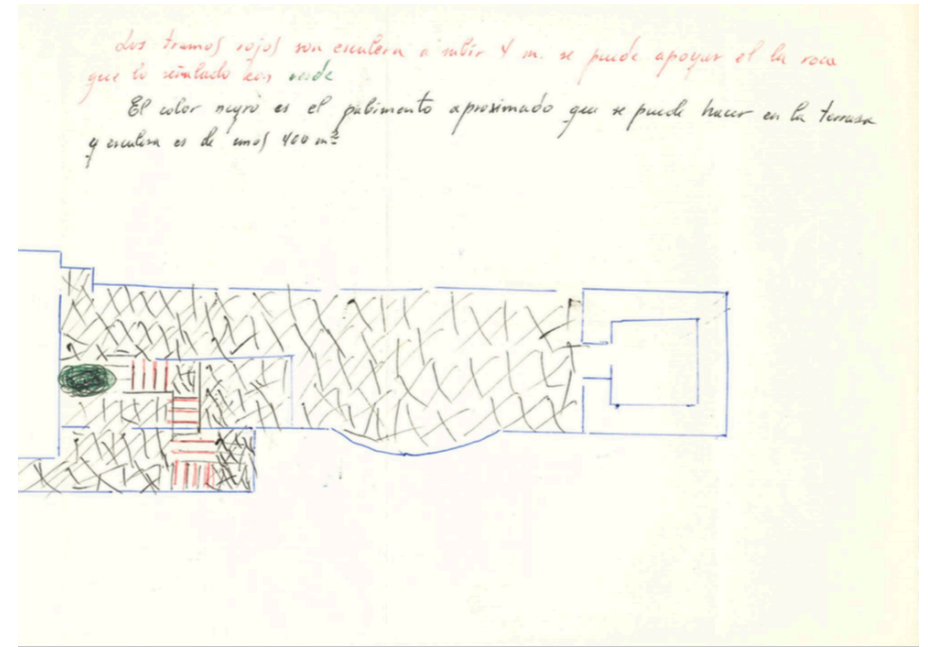 Los tramos rojos son escalera a subir 4 m. se puede apoyar el la roca
que lo señalado con verde
El color negro es el pabimento aproximado que se puede hacer en la terrasa
y escalera es de unos 400 m²